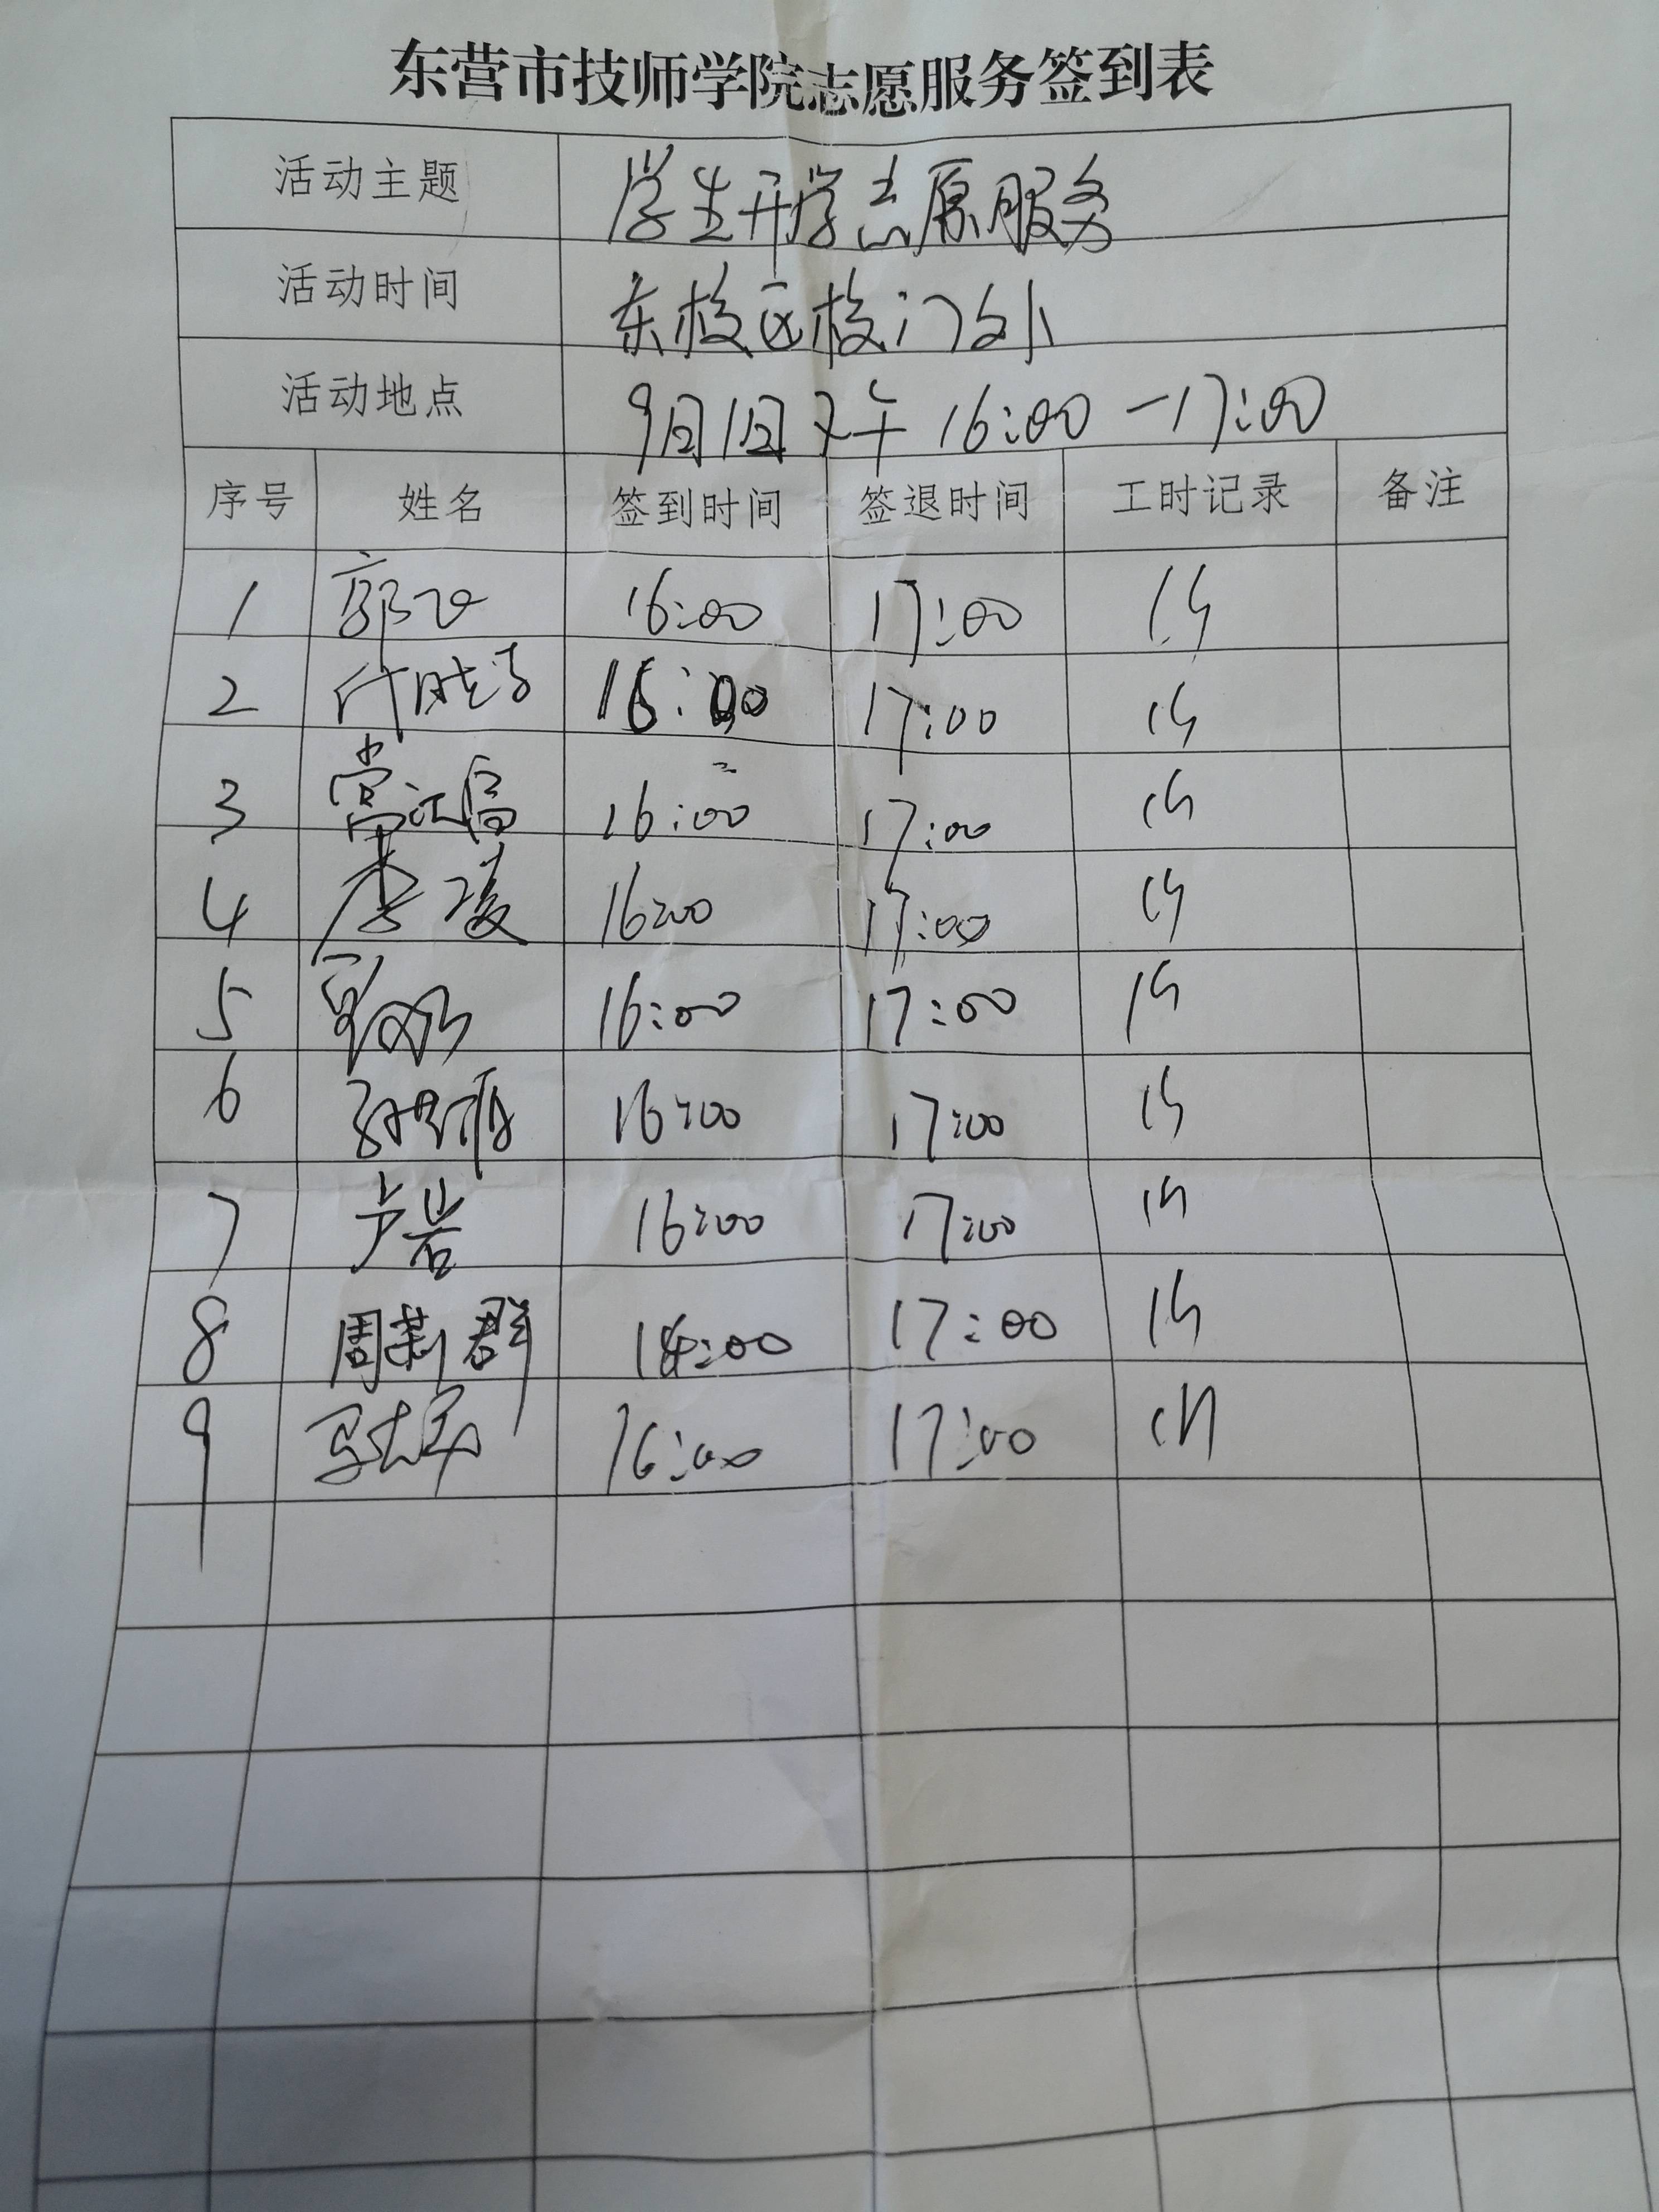 东营市技师学院志愿服务签到表
活动主题 学生开学志愿服务
活动时间 东校区校门外
活动地点 9月1日下午 16:00-17:00
序号 姓名 签到时间 签退时间 工时记录 备注
1 郭飞 16:00 17:00 1h
2 16:00 17:00 1h
3 16:00 17:00 1h
4 李凌 16:00 17:00 1h
5 16:00 17:00 1h
6 16:00 17:00 1h
7 卢岩 16:00 17:00 1h
8 周莉群 17:00 1h
9 16:00 17:00 1h